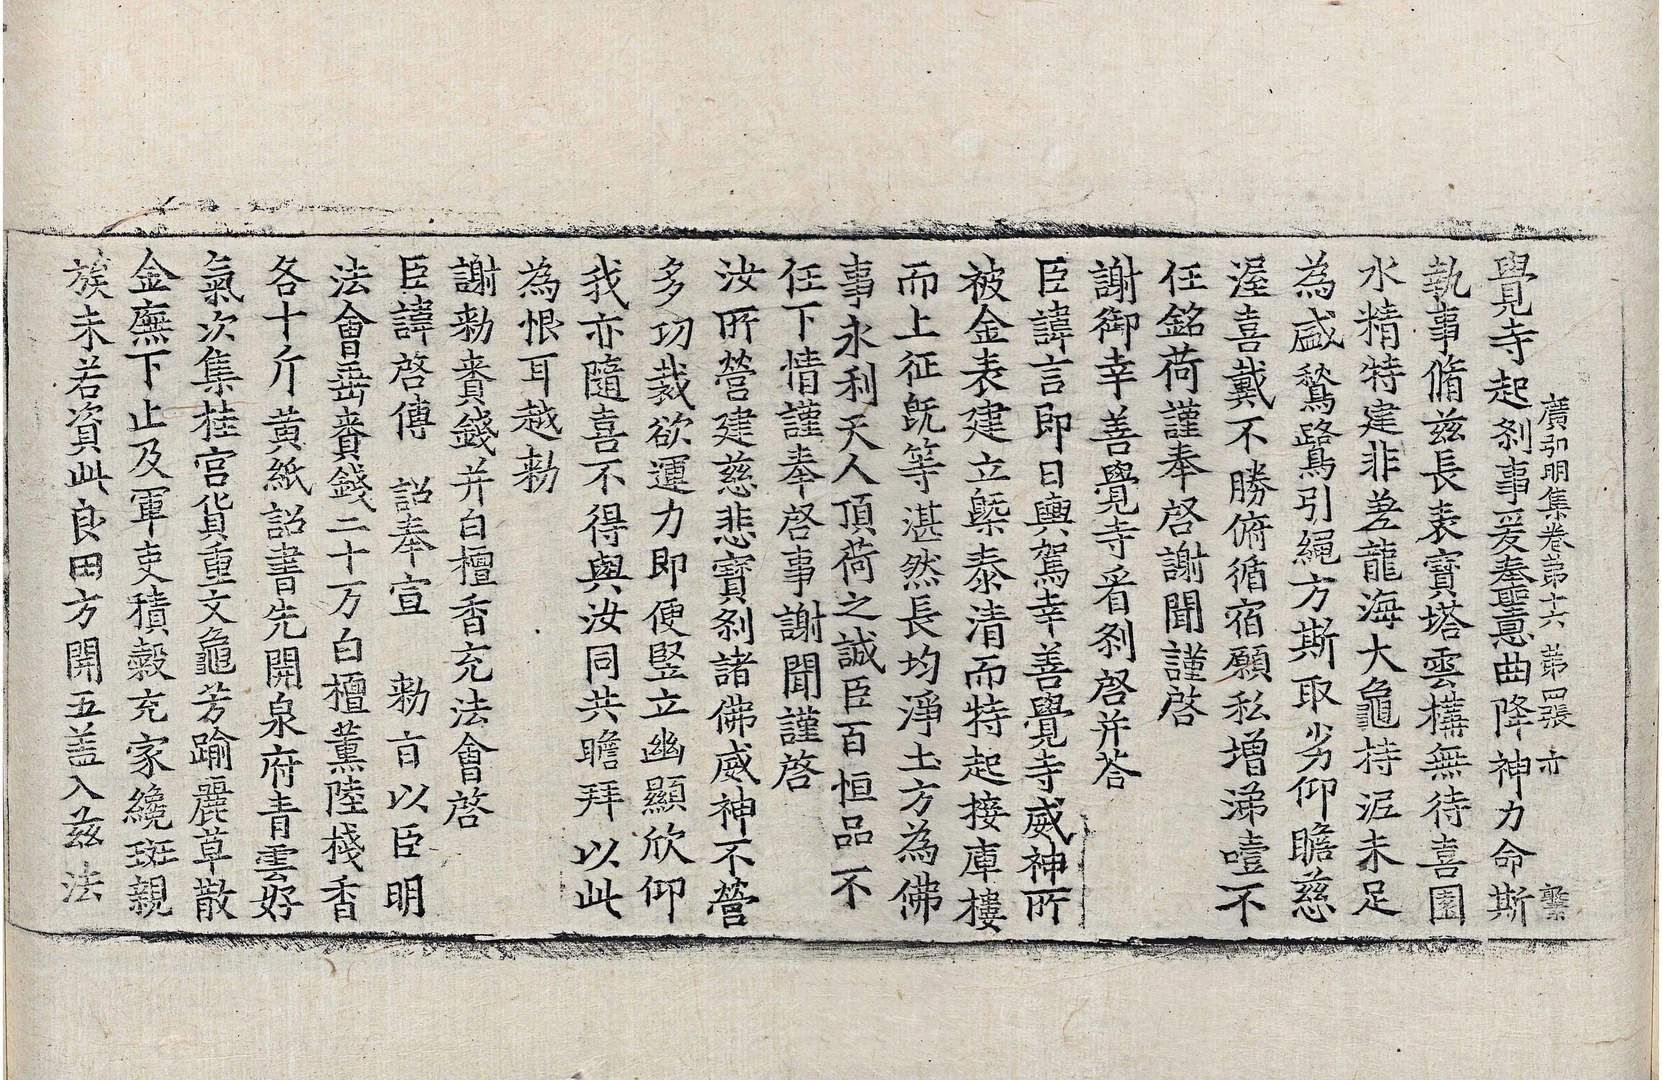 廣弘明集卷第十六 第四張 亦
覺寺起刹事爰奉聖恩曲降神力命斯
執事脩茲長表寶塔雲構無待喜園
水精特建非差龍海大龜持泥未足
為盛鶖鷺引繩方斯取劣仰瞻慈
渥喜戴不勝俯循宿願私增涕噎不
任銘荷謹奉啓謝聞謹啓
謝御幸善覺寺看刹啓并荅
臣諱言即日輿駕幸善覺寺威神所
被金表建立槩泰清而特起接庫樓
而上征旣等湛然長均淨土方為佛
事永利天人頂荷之誠臣百恒品不
任下情謹奉啓事謝聞謹啓
汝所營建慈悲寶刹諸佛威神不營
多功裁欲運力即便竪立幽顯欣仰
我亦隨喜不得與汝同共瞻拜以此
為恨耳越勑
謝勑賚錢并白檀香充法會啓
臣諱啓傳 詔奉宣 勑旨以臣明
法會垂賚錢二十万白檀薰陸棧香
各十斤黃紙詔書先開泉府青雲好
氣次集桂宮貨重文龜芳踰麗草散
金廡下止及軍吏積縠充家纔班親
族未若資此良田方開五盖入茲法